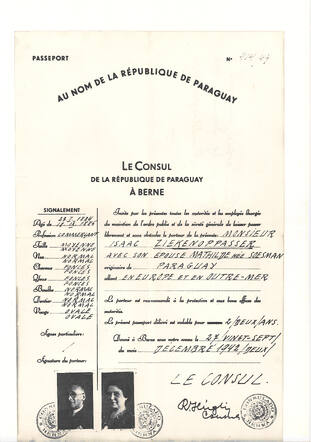 PASSEPORT
Nº
AU NOM DE LA RÉPUBLIQUE DE PARAGUAY
LE CONSUL
DE LA RÉPUBLIQUE DE PARAGUAY
À BERNE
SIGNALEMENT
Agé de
Profession COMMERÇANT
Taille MOYENNE
MOYENNE
Nez NORMAL
NORMAL
Cheveux FONCÉS
FONCÉS
FONCÉS
FONCÉS
Bouche NORMALE
NORMAL
NORMAL
NORMAL
Visage OVALE
OVALE
Signes particuliers:
Signature du porteur:
Invite par les présentes toutes les autorités et les employés chargés
du maintien de l'ordre public et de la sûreté générale de laisser passer
librement et sans obstacle le porteur de la présente: MONSIEUR
ISAAC ZIEKENOPPASSER
AVEC SON EPOUSE MATHILDE née SOESMAN
originaire de PARAGUAY
allant EN EUROPE ET EN OUTRE-MER
Le porteur est recommandé à la protection et aux bons offices des
autorités.
Le présent passeport délivré est valable pour 2/DEUX/ANS.
Donné à Berne sous notre sceau le 27 VINGT-SEPT/
du mois DECEMBRE 1942/DEUX/
LE CONSUL.